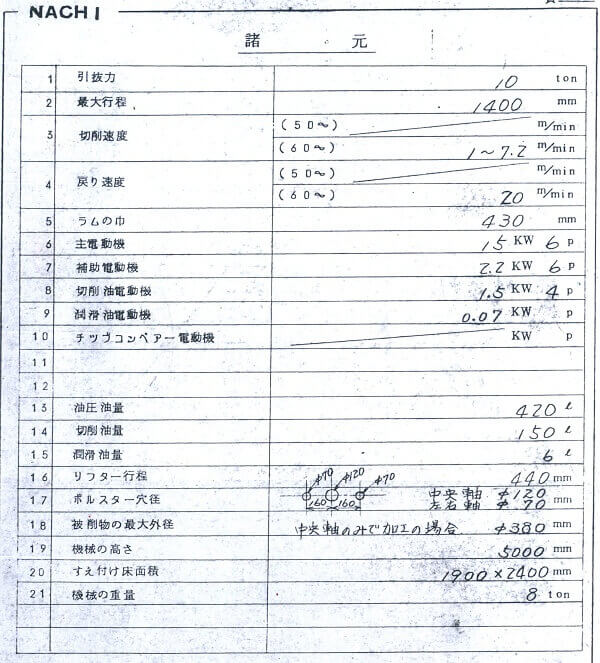 NACHI
諸 元
1 引抜力 10 ton
2 最大行程 1400 mm
3 切削速度 (50~) m/min
(60~) 1~7.2 m/min
4 戻り速度 (50~) m/min
(60~) 20 m/min
5 ラムの巾 430 mm
6 主電動機 15 KW 6 p
7 補助電動機 2.2 KW 6 p
8 切削油電動機 1.5 KW 4 p
9 潤滑油電動機 0.07 KW p
10 チップコンベアー電動機 KW p
11
12
13 油圧油量 420 ℓ
14 切削油量 150 ℓ
15 潤滑油量 6 ℓ
16 リフター行程 440 mm
17 ボルスター穴径 φ70 φ120 φ70 160 160 中央軸 φ120 mm
左右軸 φ70
18 被削物の最大外径 中央軸のみで加工の場合 φ380 mm
19 機械の高さ 5000 mm
20 すえ付け床面積 1900×2400 mm
21 機械の重量 8 ton